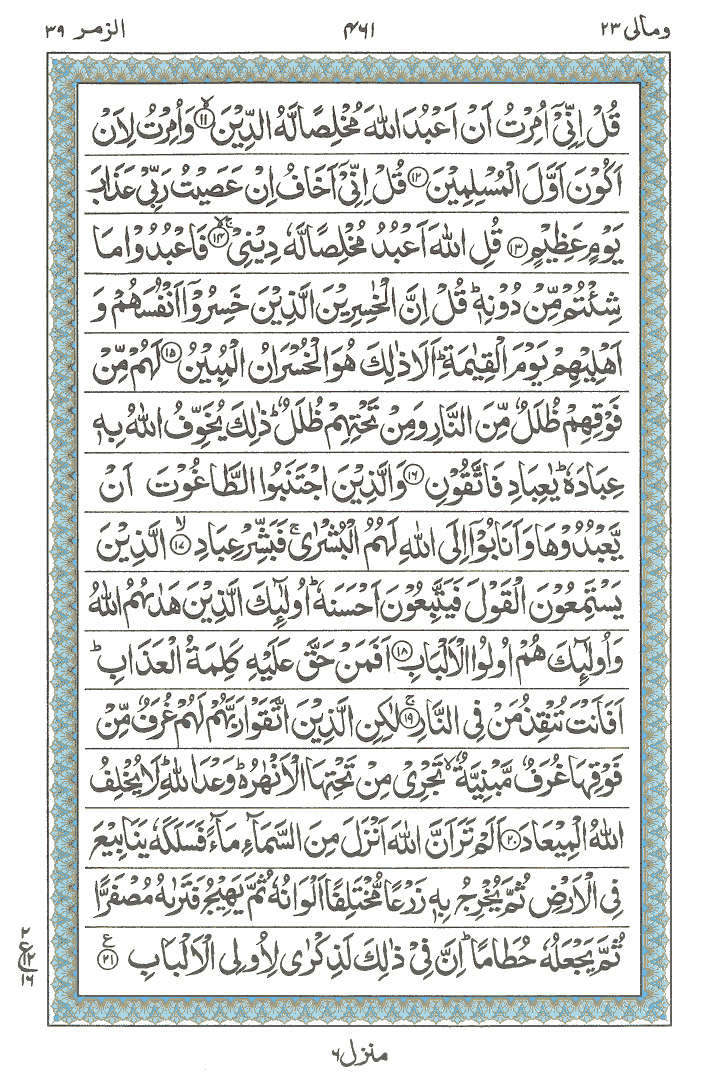 ومالی ٢٣ ٤٦١ الزمر ٣٩
قُلْ اِنِّیْۤ اُمِرْتُ اَنْ اَعْبُدَ اللّٰهَ مُخْلِصًا لَّهُ الدِّیْنَ ۙ﴿١١﴾ وَاُمِرْتُ لِاَنْ
اَكُوْنَ اَوَّلَ الْمُسْلِمِیْنَ ﴿١٢﴾ قُلْ اِنِّیْۤ اَخَافُ اِنْ عَصَیْتُ رَبِّیْ عَذَابَ
یَوْمٍ عَظِیْمٍ ﴿١٣﴾ قُلِ اللّٰهَ اَعْبُدُ مُخْلِصًا لَّهٗ دِیْنِیْ ۙ﴿١٤﴾ فَاعْبُدُوْا مَا
شِئْتُمْ مِّنْ دُوْنِهٖ ؕ قُلْ اِنَّ الْخٰسِرِیْنَ الَّذِیْنَ خَسِرُوْۤا اَنْفُسَهُمْ وَ
اَهْلِیْهِمْ یَوْمَ الْقِیٰمَةِ ؕ اَلَا ذٰلِكَ هُوَ الْخُسْرَانُ الْمُبِیْنُ ﴿١٥﴾ لَهُمْ مِّنْ
فَوْقِهِمْ ظُلَلٌ مِّنَ النَّارِ وَمِنْ تَحْتِهِمْ ظُلَلٌ ؕ ذٰلِكَ یُخَوِّفُ اللّٰهُ بِهٖ
عِبَادَهٗ ؕ یٰعِبَادِ فَاتَّقُوْنِ ﴿١٦﴾ وَالَّذِیْنَ اجْتَنَبُوا الطَّاغُوْتَ اَنْ
یَّعْبُدُوْهَا وَاَنَابُوْۤا اِلَی اللّٰهِ لَهُمُ الْبُشْرٰی ۚ فَبَشِّرْ عِبَادِ ۙ﴿١٧﴾ الَّذِیْنَ
یَسْتَمِعُوْنَ الْقَوْلَ فَیَتَّبِعُوْنَ اَحْسَنَهٗ ؕ اُولٰٓئِكَ الَّذِیْنَ هَدٰىهُمُ اللّٰهُ
وَاُولٰٓئِكَ هُمْ اُولُوا الْاَلْبَابِ ﴿١٨﴾ اَفَمَنْ حَقَّ عَلَیْهِ كَلِمَةُ الْعَذَابِ ؕ
اَفَاَنْتَ تُنْقِذُ مَنْ فِی النَّارِ ۚ﴿١٩﴾ لٰكِنِ الَّذِیْنَ اتَّقَوْا رَبَّهُمْ لَهُمْ غُرَفٌ مِّنْ
فَوْقِهَا غُرَفٌ مَّبْنِیَّةٌ ۙ تَجْرِیْ مِنْ تَحْتِهَا الْاَنْهٰرُ ؕ وَعْدَ اللّٰهِ ؕ لَا یُخْلِفُ
اللّٰهُ الْمِیْعَادَ ﴿٢٠﴾ اَلَمْ تَرَ اَنَّ اللّٰهَ اَنْزَلَ مِنَ السَّمَآءِ مَآءً فَسَلَكَهٗ یَنَابِیْعَ
فِی الْاَرْضِ ثُمَّ یُخْرِجُ بِهٖ زَرْعًا مُّخْتَلِفًا اَلْوَانُهٗ ثُمَّ یَهِیْجُ فَتَرٰىهُ مُصْفَرًّا
ثُمَّ یَجْعَلُهٗ حُطَامًا ؕ اِنَّ فِیْ ذٰلِكَ لَذِكْرٰی لِاُولِی الْاَلْبَابِ ﴿٢١﴾ ع
٢
ع
١٢
١٦
منزل ٦